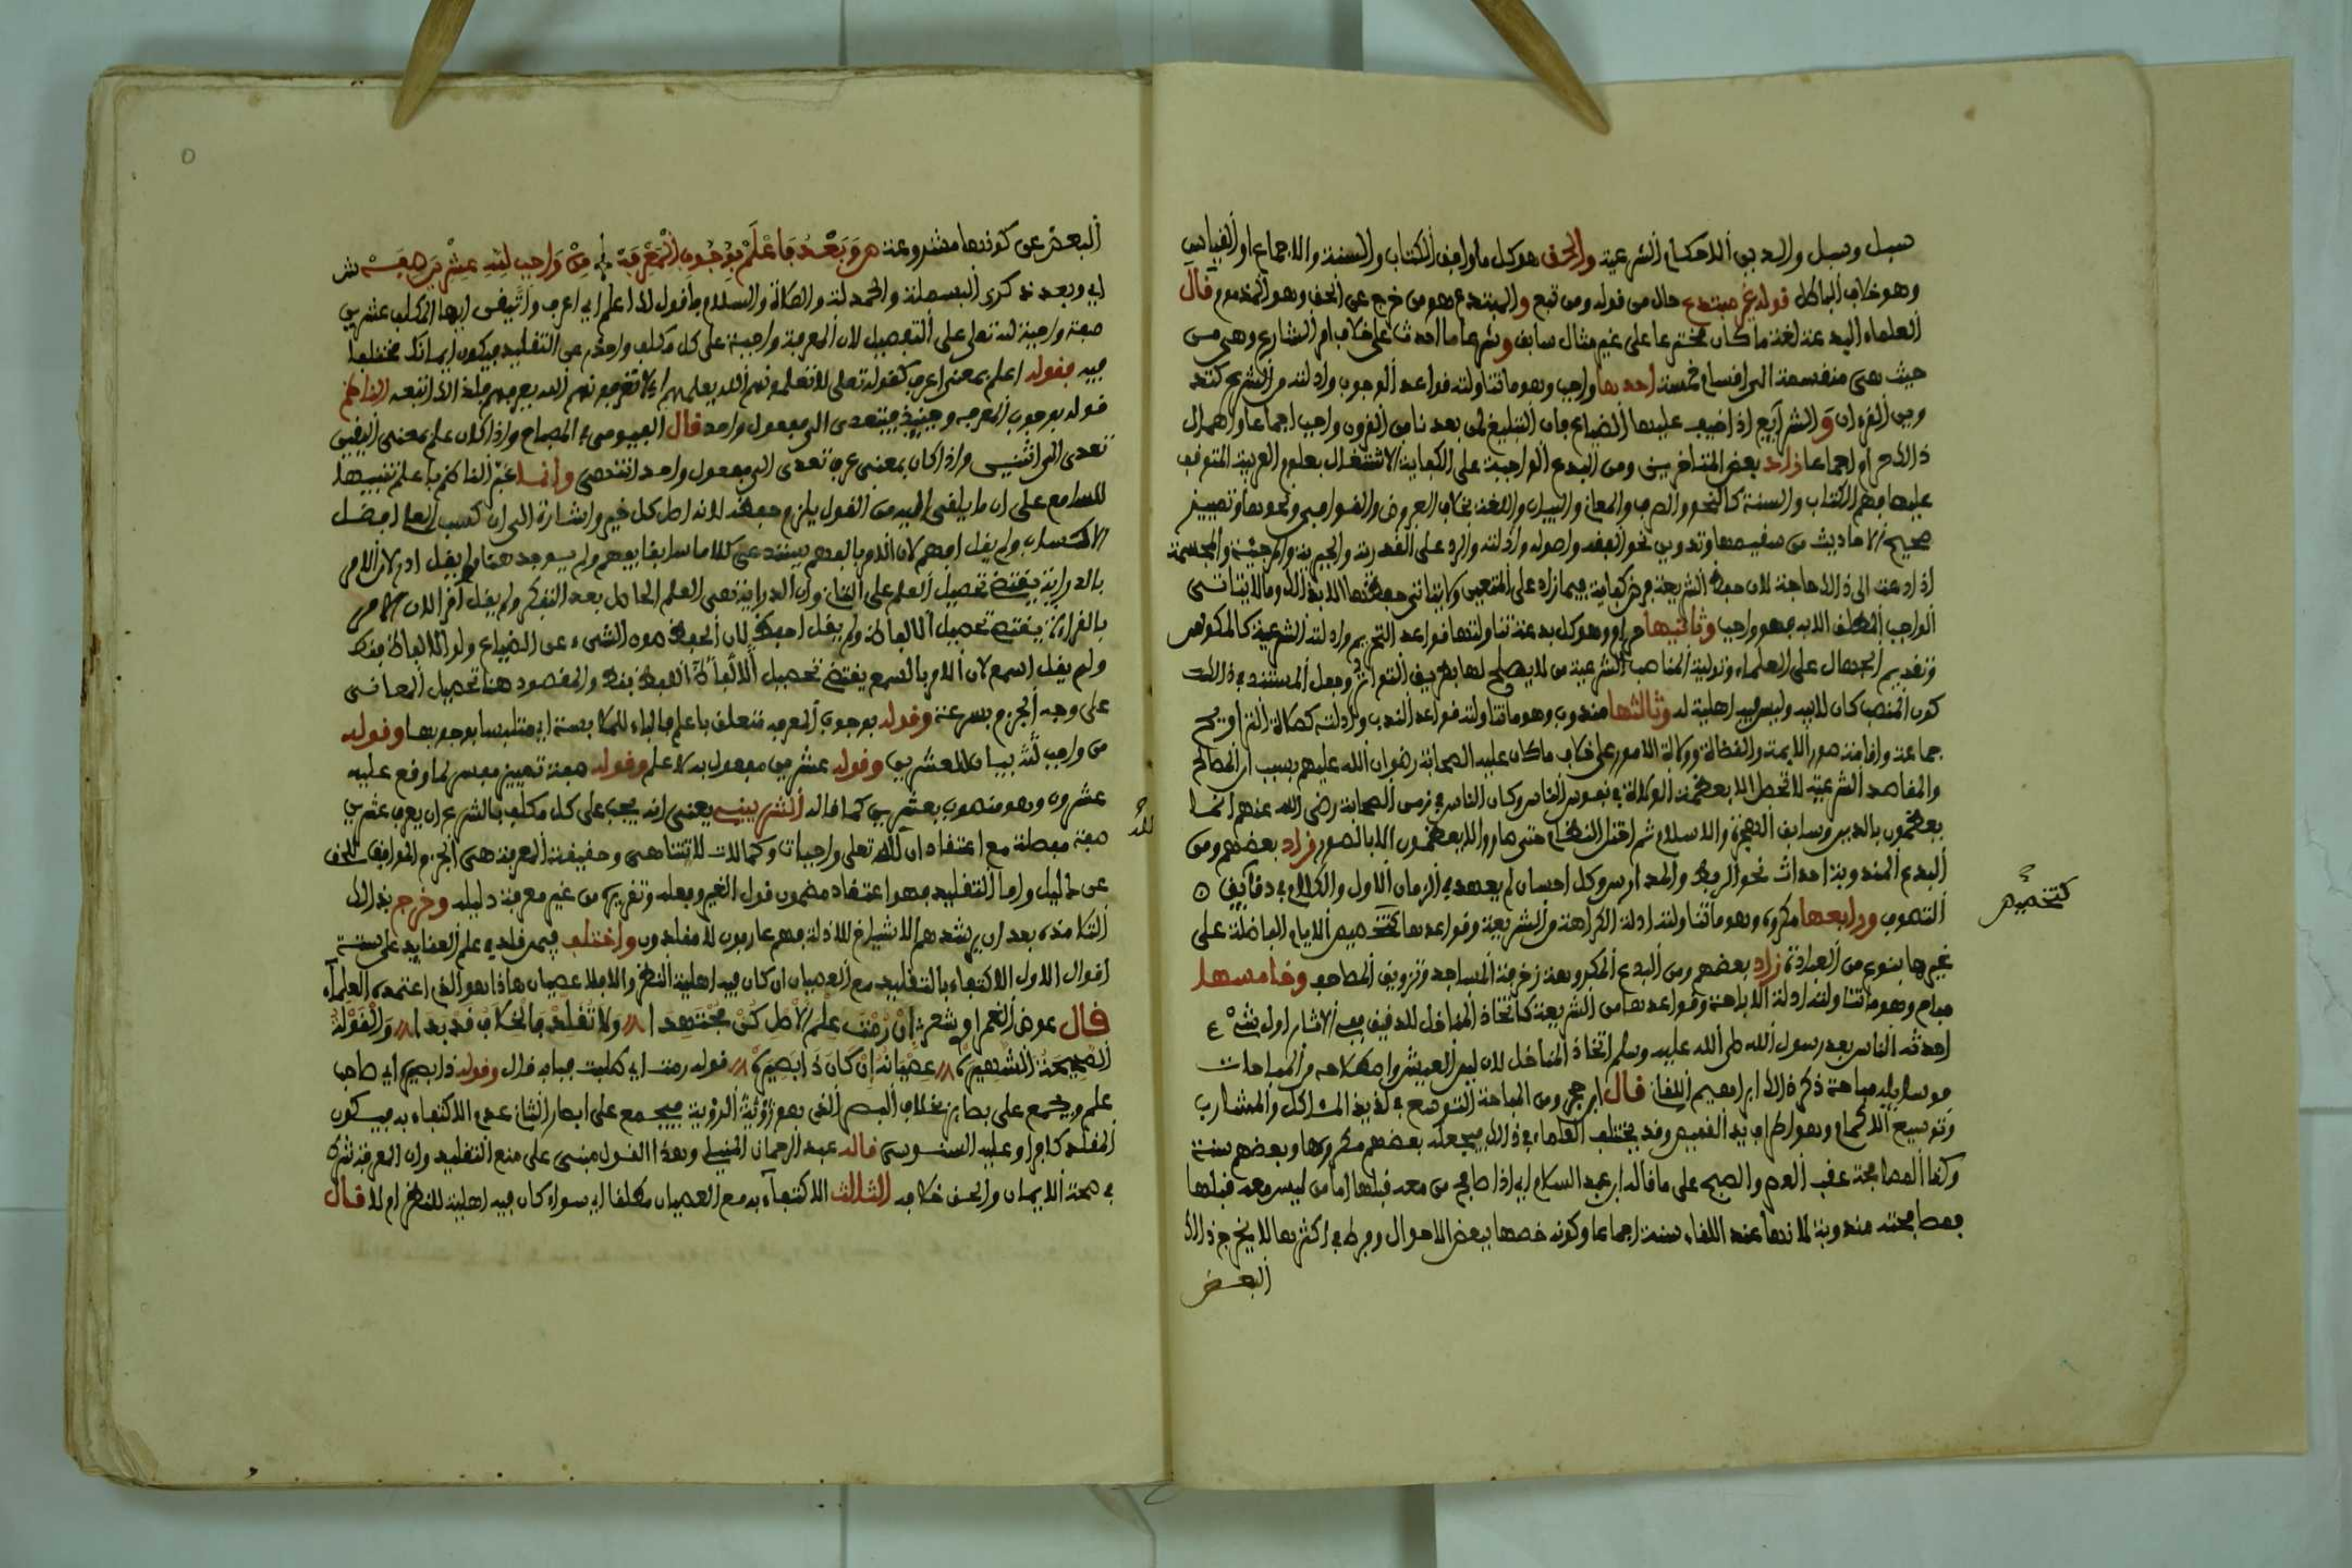 سبل وسبل والدين الاحكام الشرعية والحق هو كل ما وافق الكتاب والسنة والاجماع او القياس
وهو خلاف الباطل قوله غير مبتدع حال من قوله ومن تبع والمبتدع هو من خرج عن الحق وهو المذموم قال
العلماء البدعة لغة ما كان مخترعا على غير مثال سابق وشرعا ما احدث على خلاف امر الشارع وهي من
حيث هي منقسمة الى اقسام خمسة احدها واجب وهو ما تناولته قواعد الوجوب وادلته من الشرع كتد
وين القرءان والشرآيع اذا خيف عليها الضياع فان التبليغ لمن بعدنا من القرون واجب اجماعا واهمال
ذالك حرام اجماعا زاد بعض المتاخرين ومن البدع الواجبة على الكفاية الاشتغال بعلوم العربية المتوقف
عليها فهم الكتاب والسنة كالنحو والصرف والمعاني والبيان واللغة بخلاف العروض والقوافي ونحوها وتمييز
صحيح الاحاديث من سقيمها وتدوين نحو الفقه واصوله وادلته والرد على القدرية والجبرية والمرجئة والمجسمة
اذا دعت الى ذالك حاجة لان حفظ الشريعة فرض كفاية فيما زاد على المتعين ولا يتاتى حفظها الا بذالك وما لا يتاتى
الواجب المطلق الا به فهو واجب وثانيها حرام وهو كل بدعة تناولتها قواعد التحريم وادلته الشرعية كالمكوس
وتقديم الجهال على العلماء وتولية المناصب الشرعية من لا يصلح لها بطريق التوارث وجعل المستند في ذالك
كون المنصب كان لابيه وليس فيه اهلية له وثالثها مندوب وهو ما تناولته قواعد الندب وادلته كصلاة التراويح
جماعة واقامة صور الايمة والقضاة وولاة الامور على خلاف ما كان عليه الصحابة رضوان الله عليهم بسبب ان المصالح
والمقاصد الشرعية لا تحصل الا بعظمة الولاة في نفوس الناس وكان الناس في زمن الصحابة رضي الله عنهم انما
يعظمون بالدين وسابق الهجرة والاسلام ثم اختل النظام حتى صاروا لا يعظمون الا بالصور وزاد بعضهم ومن
البدع المندوبة احداث نحو الربط والمدارس وكل احسان لم يعهد في الزمان الاول والكلام في دقايق
التصوف ورابعها مكروه وهو ما تناولته ادلة الكراهة من الشريعة وقواعدها كتخصيص الايام الفاضلة على
كتخصيص
غيرها بنوع من العبادة زاد بعضهم ومن البدع المكروهة زخرفة المساجد وتزويق المصاحف وخامسها
مباح وهو ما تناولته ادلة الاباحة وقواعدها من الشريعة كاتخاذ المناخل للدقيق ففي الاثار اول شيء
احدثه الناس بعد رسول الله صلى الله عليه وسلم اتخاذ المناخل لان لين العيش واصلاحه من المباحات
فوسايله مباحة ذكر ذالك ابراهيم اللقاني قال ابن حجر ومن المباحة التوسع في لذيذ المئاكل والمشارب
وتوسيع الاكمام وهو اطراف يد القميص وقد يختلف العلماء في ذالك فيجعله بعضهم مكروها وبعضهم سنة
وكذا المصافحة عقب العصر والصبح على ما قاله ابن عبد السلام اي اذا صافح من معه قبلها اما من ليس معه قبلها
فمصافحته مندوبة لانها عند اللقاء سنة اجماعا وكونه خصها ببعض الاحوال وفرط في اكثرها لا يخرج ذالك
البعض
البعض عن كونها مشروعة ص وَبَعْدُ فَاعْلَمْ بِوُجُوبِ الْمَعْرِفَهْ مِنْ وَاجِبٍ لِلّٰهِ عِشْرِينَ صِفَهْ ش
اي وبعد ذكري البسملة والحمدلة والصلاة والسلام فاقول لك اعلم اي اعرف واتيقن ايها المكلف عشرين
صفة واجبة لله تعلى على التفصيل لان المعرفة واجبة على كل مكلف واحذر عن التقليد فيكون ايمانك مختلفا
فيه فقوله اعلم بمعنى اعرف كقوله تعلى لا تعلمونهم الله يعلمهم اي لا تعرفونهم الله يعرفهم فلذالك اتبعه الناظم
قوله بوجوب المعرفه وحينيذ فيتعدى الى مفعول واحد قال الفيومي في المصباح واذا كان علم بمعنى اليقين
تعدى الى اثنين واذا كان بمعنى عرف تعدى الى مفعول واحد انتهى وانما عبر الناظم باعلم تنبيها
للسامع على ان ما يلقى اليه من القول يلزم حفظه لانه اصل كل خير واشارة الى ان كسب العلم افضل
الاكتساب ولم يقل افهم لان الامر بالفهم يستدعي كلاما سابقا يفهم ولم يوجد هنا ولم يقل ادر لان الامر
بالدراية يقتضي تحصيل العلم على الثاني وان الدراية هي العلم الحاصل بعد التفكر ولم يقل اقرا لان الامر
بالقراءة يقتضي تحصيل الالفاظ ولم يقل احفظ لان الحفظ صون الشيء عن الضياع ولو الالفاظ فقط
ولم يقل اسمع لان الامر بالسمع يقتضي تحصيل الالفاظ اللفظ فقط والمقصود هنا تحصيل المعاني
على وجه الجزم بسرعة وقوله بوجوب المعرفه متعلق باعلم فالباء للملابسة اي متلبسا بوجوبها وقوله
من واجب لله بيان للعشرين وقوله عشرين مفعول به لاعلم وقوله صفة تمييز مفسر لما وقع عليه
عشرون وهو منصوب بعشرين كما قاله الشربيني يعني انه يجب على كل مكلف بالشرع ان يعرف عشرين
صفة مفصلة مع اعتقاد ان لله تعلى واجبات وكمالات لا تتناهى وحقيقة المعرفة هي الجزم الموافق للحق
لله
عن دليل واما التقليد فهو اعتقاد مضمون قول الغير وفعله وتقريره من غير معرفة دليله وخرج بذالك
التلامذة بعد ان يرشدهم الاشياخ للادلة فهم عارفون لا مقلدون واختلف فيمن قلد في علم العقايد على ستة
اقوال الاول الاكتفاء بالتقليد مع العصيان ان كان فيه اهلية النظر والا فلا عصيان هاذا هو الذي اعتمده العلمآء
قال عوض الغمراوي شعر اِنْ رُمْتَ عِلْمَ الْأَصْلِ كُنْ مُجْتَهِدَا وَلَا تُقَلِّدْ فَالْخِلَافُ قَدْ بَدَا وَالْقَوْلَةُ
الصَّحِيحَةُ الشَّهِيرَه عِصْيَانُهُ اِنْ كَانَ ذَا بَصِيرَه قوله رمت اي طلبت جبابه قال وقوله ذا بصيره اي صاحب
علم ويجمع على بصاير بخلاف البصر الذي هو رؤية الرؤية فيجمع على ابصار الثاني عدم الاكتفاء به فيكون
المقلد كافرا وعليه السنوسي قاله عبد الرحمان المنيلي وهذا القول مبني على منع التقليد وان المعرفة شرط
في صحة الايمان والحق خلافه الثالث الاكتفآء به مع العصيان مطلقا اي سواء كان فيه اهلية للنظر ام لا قال